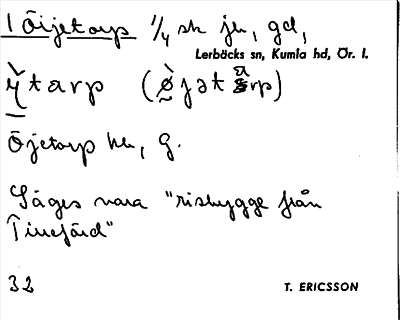 1 Öijetorp 1/4 sk jb, gd,
Lerbäcks sn, Kumla hd, Ör. l.
ỳtarp (ø̀jətarp)
Öjetorp hn, G.
Säges vara "risbygge från
Tivefärd"
32
T. ERICSSON